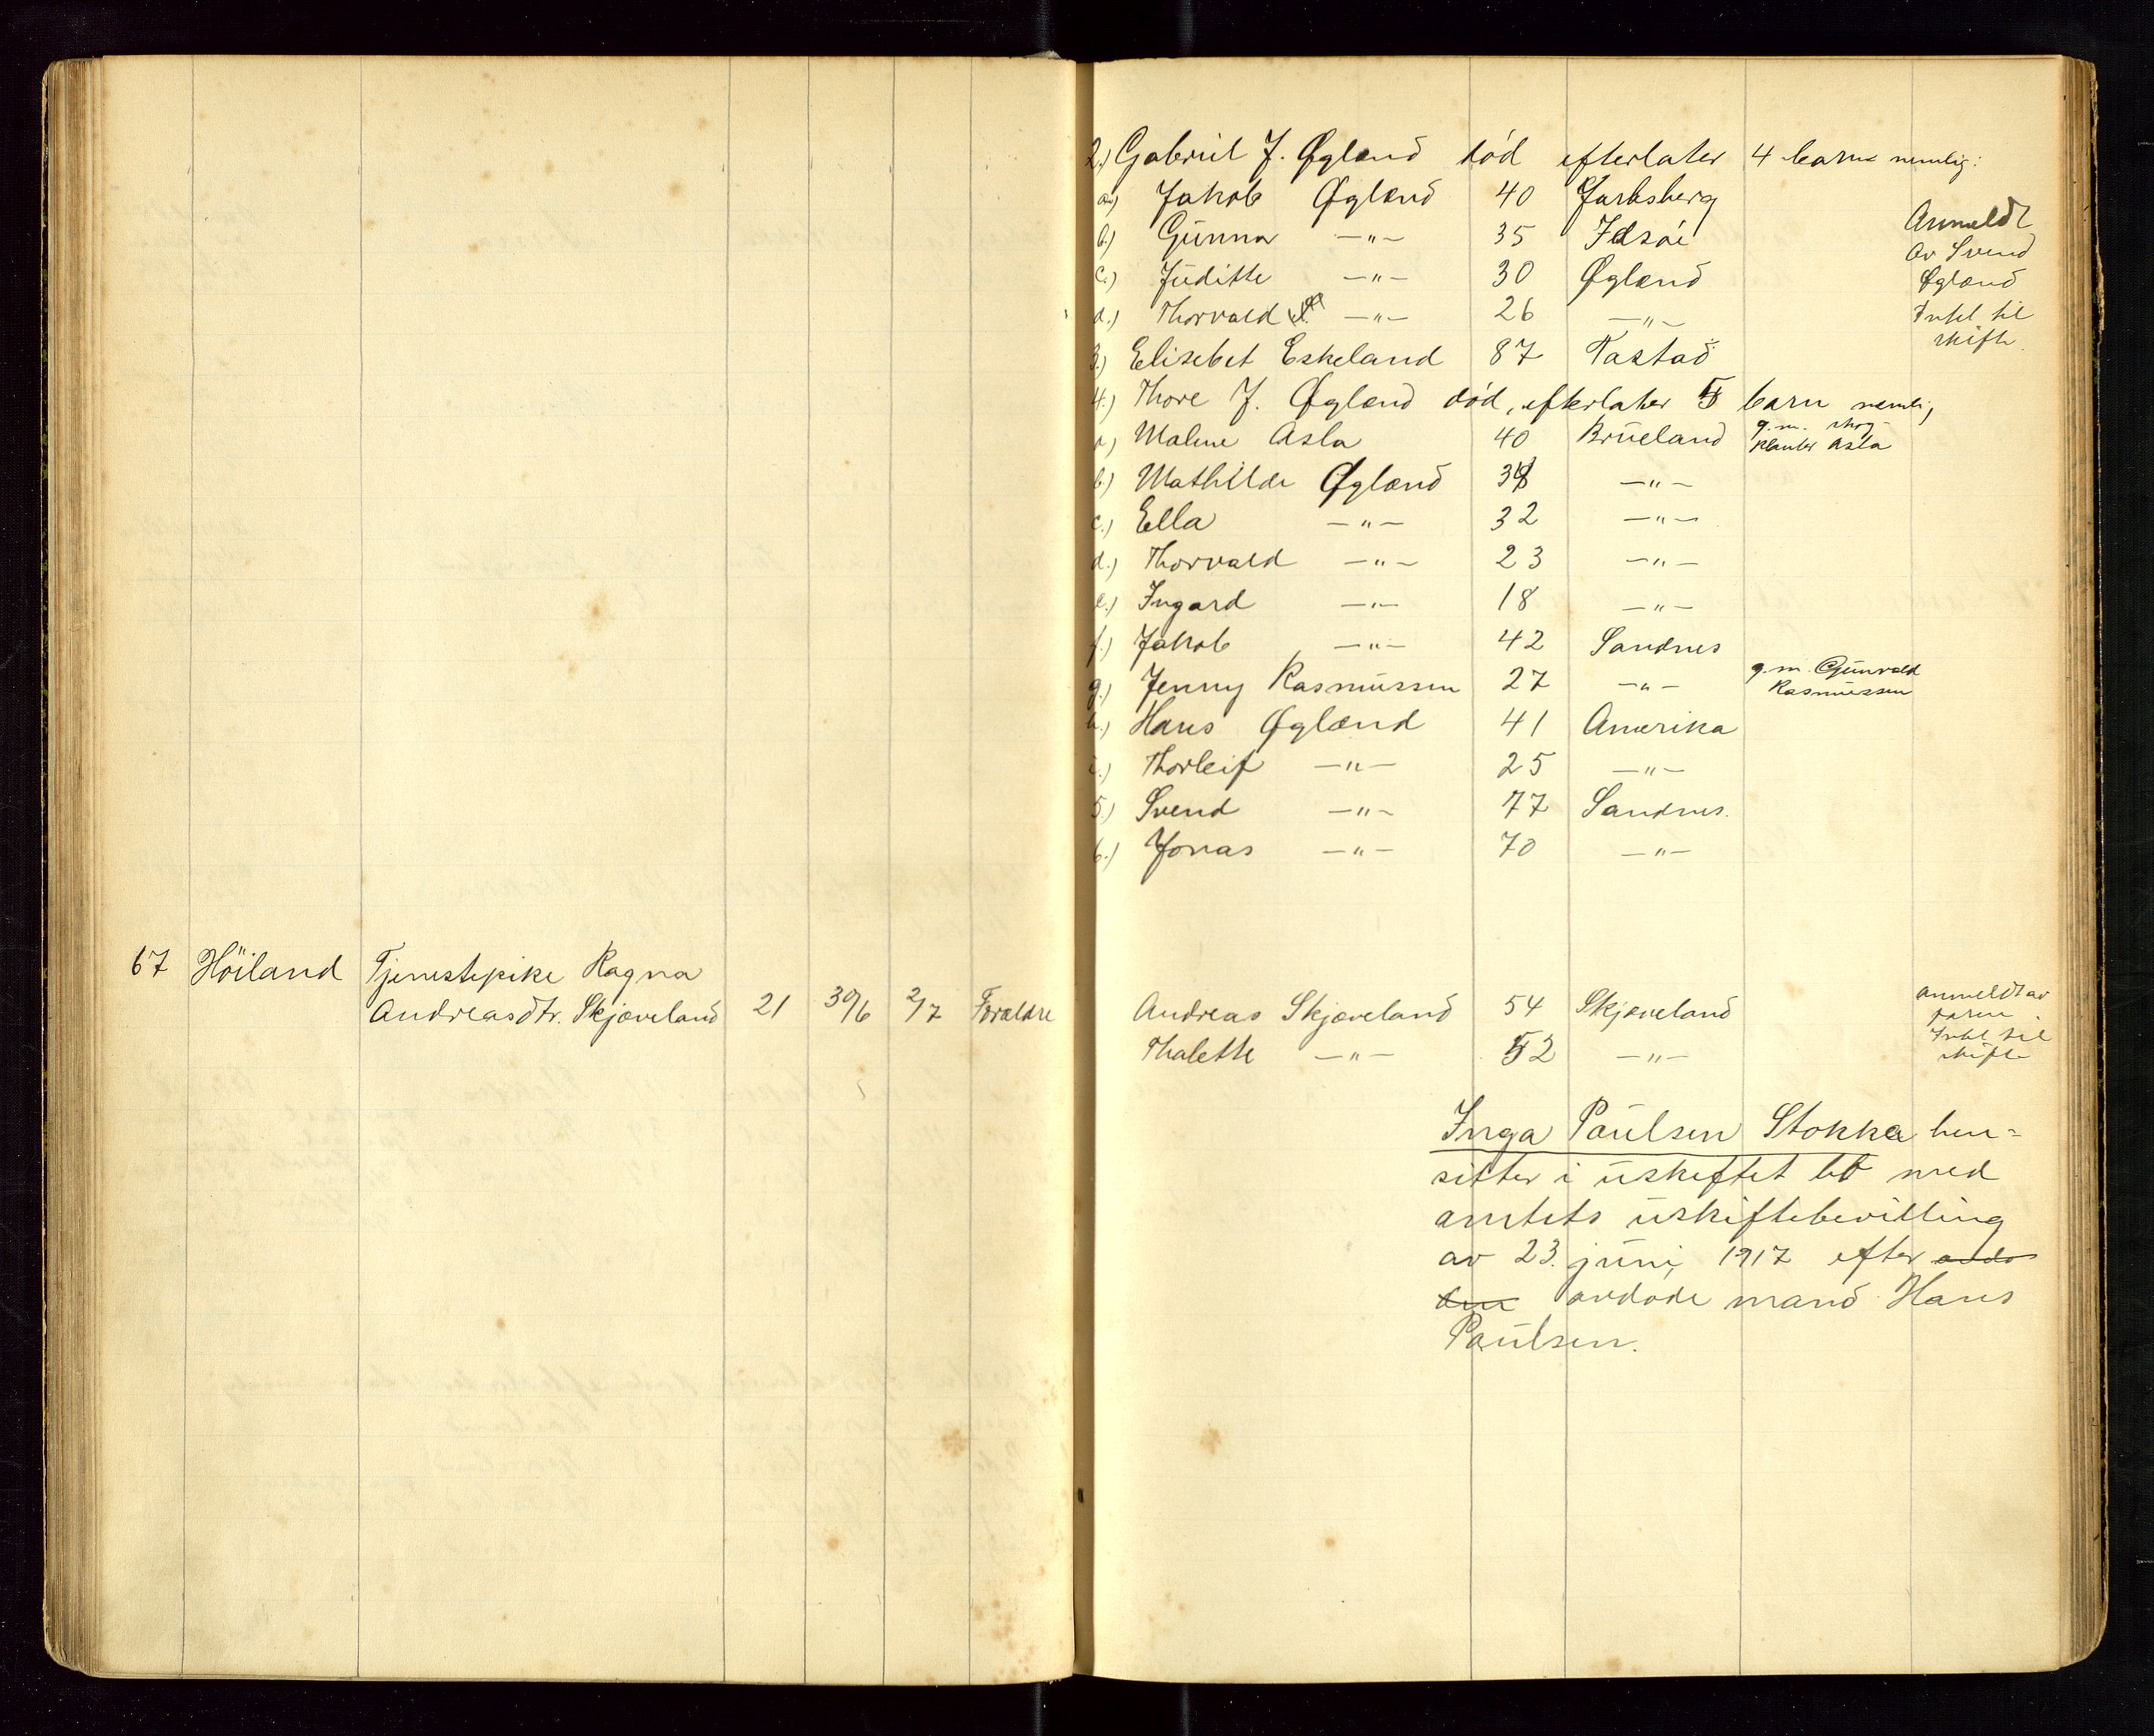 2.) Gabriel J. Øgland död efterlater 4 barn nemlig:
a) Jakob Øgland 40
b.) Gunna —"— 35 Idsöe
c.) Juditte —"— 30 Øgland
d.) Thorvald —"— 26 —"—
Anmeldt
av Svend
Øgland
Intet til
skifte.
3.) Elisebet Eskeland 87 Tastad
4.) Thore J. Øgland död, efterlater barn
a) Malene Asla 40 Brueland g.m. skog-
planter Asla
b) Mathilde Øgland —"—
c.) Ella —"— 32 —"—
d.) Thorvald —"— 23 —"—
e.) Ingard —"— 18 —"—
f.) Jakob —"— 42 Sandnes
g.) Jenny Rasmussen 27 —"— g.m. Gunvald
Rasmussen
h.) Hans Øgland 41 Amerika
i.) Thorleif —"— 25 —"—
5.) Svend —"— 77 Sandnes.
6.) Jonas —"— 70 —"—
67 Höiland Tjenestepike Ragna
Andreasdtr. Skjæveland 21 30/6 2/7 Forældre
Andreas Skjæveland 54 Skjæveland
Thalette —"— 52 —"—
anmeldt av
faren
Intet til
skifte
Inga Paulsen Stokka hen-
sitter i uskiftet bo med
amtets uskiftebevilling
av 23. juni 1917 efter avdø
den avdøde mand Hans
Paulsen.